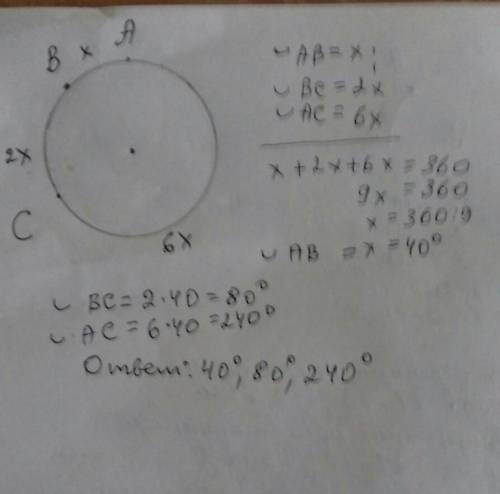 A
B x
2x
C
6x
◡ AB = x;
◡ BC = 2x
◡ AC = 6x
x + 2x + 6x = 360
9x = 360
x = 360:9
◡ AB = x = 40°
◡ BC = 2·40 = 80°
◡ AC = 6·40 = 240°
Ответ: 40°, 80°, 240°